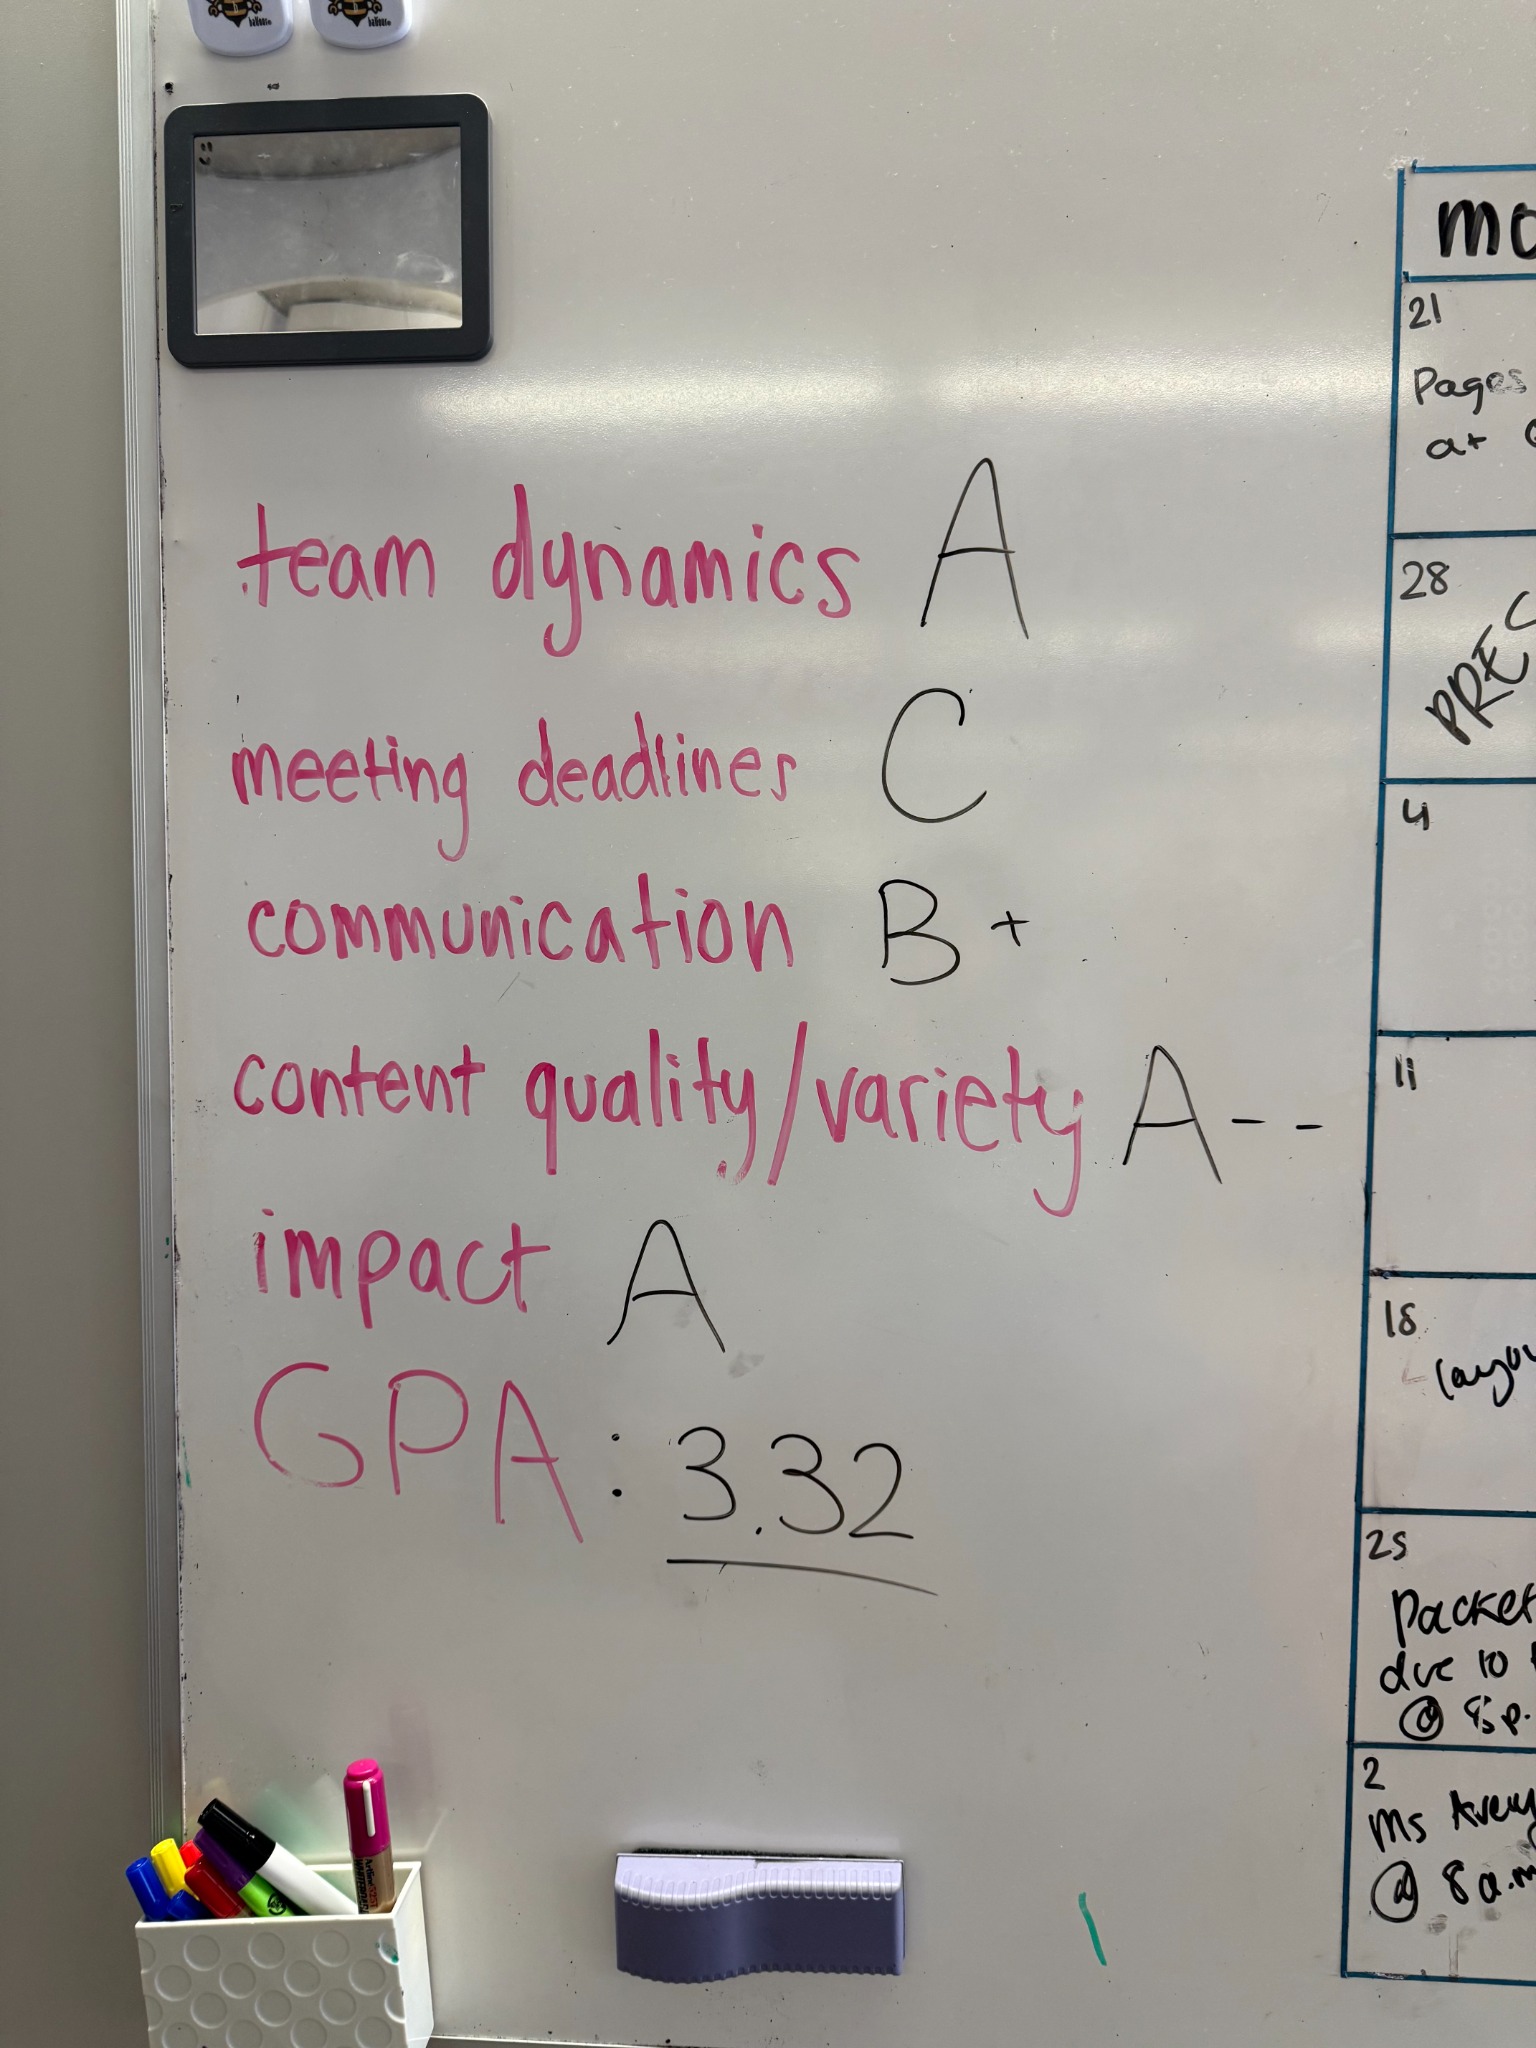 team dynamics A
meeting deadlines C
communication B+
content quality/variety A--
impact A
GPA: 3.32
21
Pages
at
28
4
11
18
25
Packet
due to
@ 8p.
2
Ms Avery
@ 8 a.m